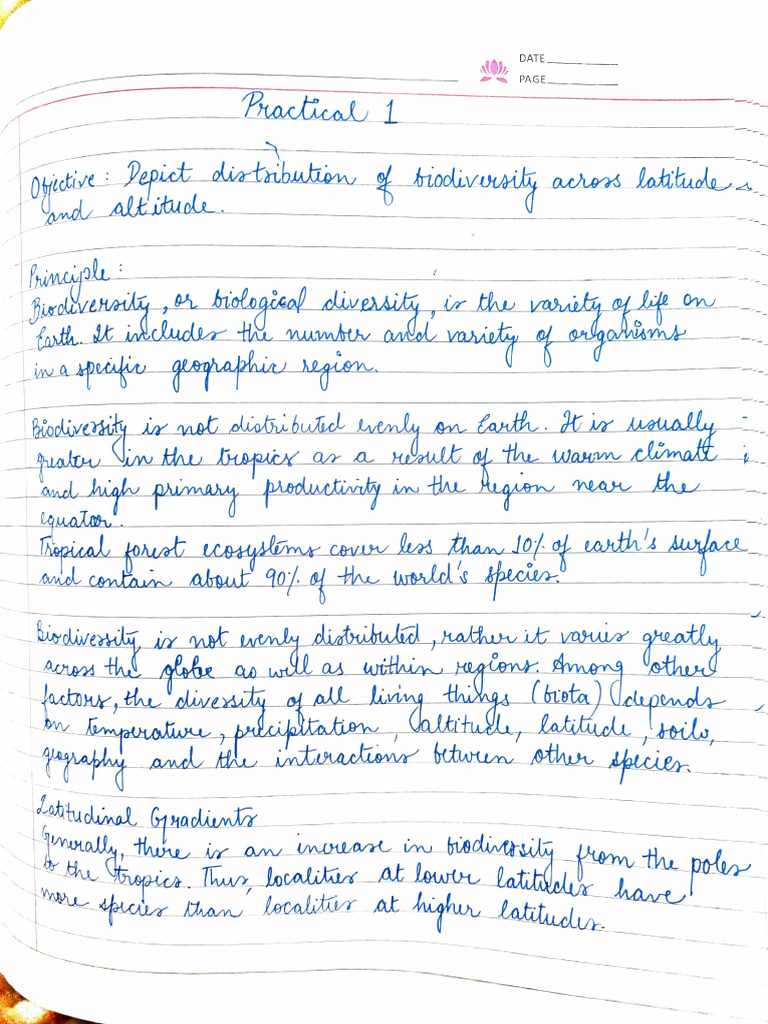 DATE
PAGE
Practical 1
Objective: Depict distribution of biodiversity across latitude
and altitude.
Principle:
Biodiversity, or biological diversity, is the variety of life on
Earth. It includes the number and variety of organisms
in a specific geographic region.
Biodiversity is not distributed evenly on Earth. It is usually
greater in the tropics as a result of the warm climate
and high primary productivity in the region near the
equator.
Tropical forest ecosystems cover less than 10% of earth's surface
and contain about 90% of the world's species.
Biodiversity is not evenly distributed, rather it varies greatly
across the globe as well as within regions. Among other
factors, the diversity of all living things (biota) depends
on temperature, precipitation, altitude, latitude, soils,
geography and the interactions between other species.
Latitudinal Gradients
Generally, there is an increase in biodiversity from the poles
to the tropics. Thus, localities at lower latitudes have
more species than localities at higher latitudes.